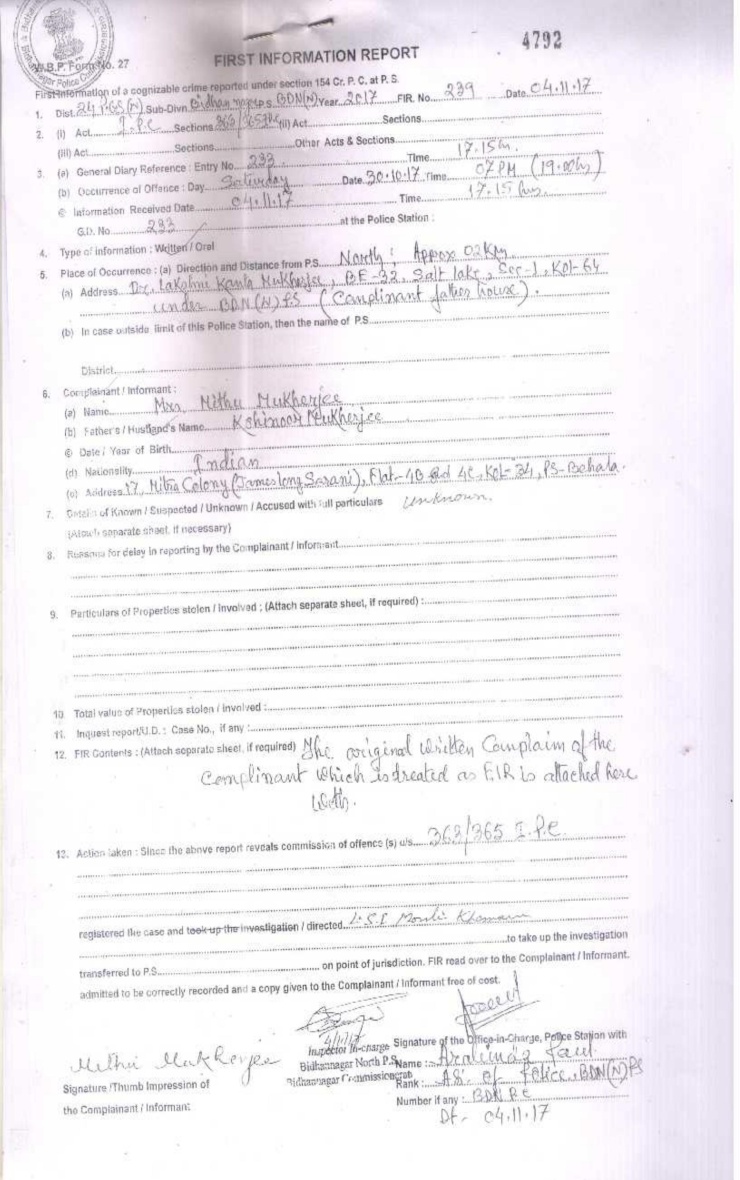 4792
W.B.P. Form No. 27
FIRST INFORMATION REPORT
First Information of a cognizable crime reported under section 154 Cr. P. C. at P. S.
1. Dist. 24 PGS (N) Sub-Divn. Bidhannagar P.S. BDN(N) Year 2017 FIR. No. 239 Date 04.11.17
2. (i) Act I.P.C Sections 363/365 (ii) Act Sections
(iii) Act Sections Other Acts & Sections
3. (a) General Diary Reference : Entry No. 233 Time 17.15 hrs.
(b) Occurrence of Offence : Day Saturday Date 30.10.17 Time 07 PM (19.00 hrs)
© Information Received Date 04.11.17 Time 17.15 hrs
G.D. No. 233 at the Police Station :
4. Type of information : Written / Oral
5. Place of Occurrence : (a) Direction and Distance from P.S. North ; Approx 02 KM
(a) Address Dr. Lakshmi Kanta Mukherjee, BE-32, Salt lake, Sec-1, Kol-64
under BDN(N) P.S (Complinant father house).
(b) In case outside limit of this Police Station, then the name of P.S
District
6. Complainant / Informant :
(a) Name Mrs. Mithu Mukherjee
(b) Father's / Husband's Name Kohinoor Mukherjee
© Date / Year of Birth
(d) Nationality Indian
(e) Address 17, Mitra Colony (James long Sarani), Flat-4B and 4C, Kol-34, PS-Behala.
7. Details of Known / Suspected / Unknown / Accused with full particulars unknown.
(Attach separate sheet, if necessary)
8. Reasons for delay in reporting by the Complainant / Informant
9. Particulars of Properties stolen / Involved ; (Attach separate sheet, if required) :
10. Total value of Properties stolen / involved :
11. Inquest report/U.D. : Case No., if any :
12. FIR Contents : (Attach separate sheet, if required) The original written Complaim of the
Complinant which is treated as FIR is attached here
with.
13. Action taken : Since the above report reveals commission of offence (s) u/s 363/365 I.P.C.
registered the case and took up the investigation / directed L.S.I
to take up the investigation
transferred to P.S. on point of jurisdiction. FIR read over to the Complainant / Informant.
admitted to be correctly recorded and a copy given to the Complainant / Informant free of cost.
4/11/17
Inspector In-charge
Bidhannagar North P.S.
Bidhannagar Commissionerate
Signature of the Office-in-Charge, Police Station with
Name :
Rank : ASI of Police, BDN(N) PS
Number if any : BDN P.C
Dt- 04.11.17
Mithu Mukherjee
Signature /Thumb Impression of
the Complainant / Informant